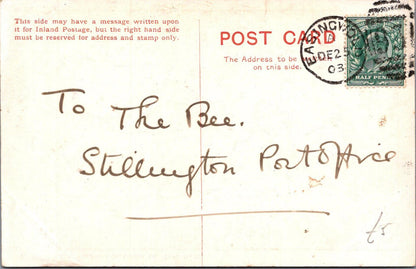 This side may have a message written upon
it for Inland Postage, but the right hand side
must be reserved for address and stamp only.
POST CARD
The Address to be
on this side.
DE 2
03
HALF PENNY
To The Bee.
Stillington Post Office
£5